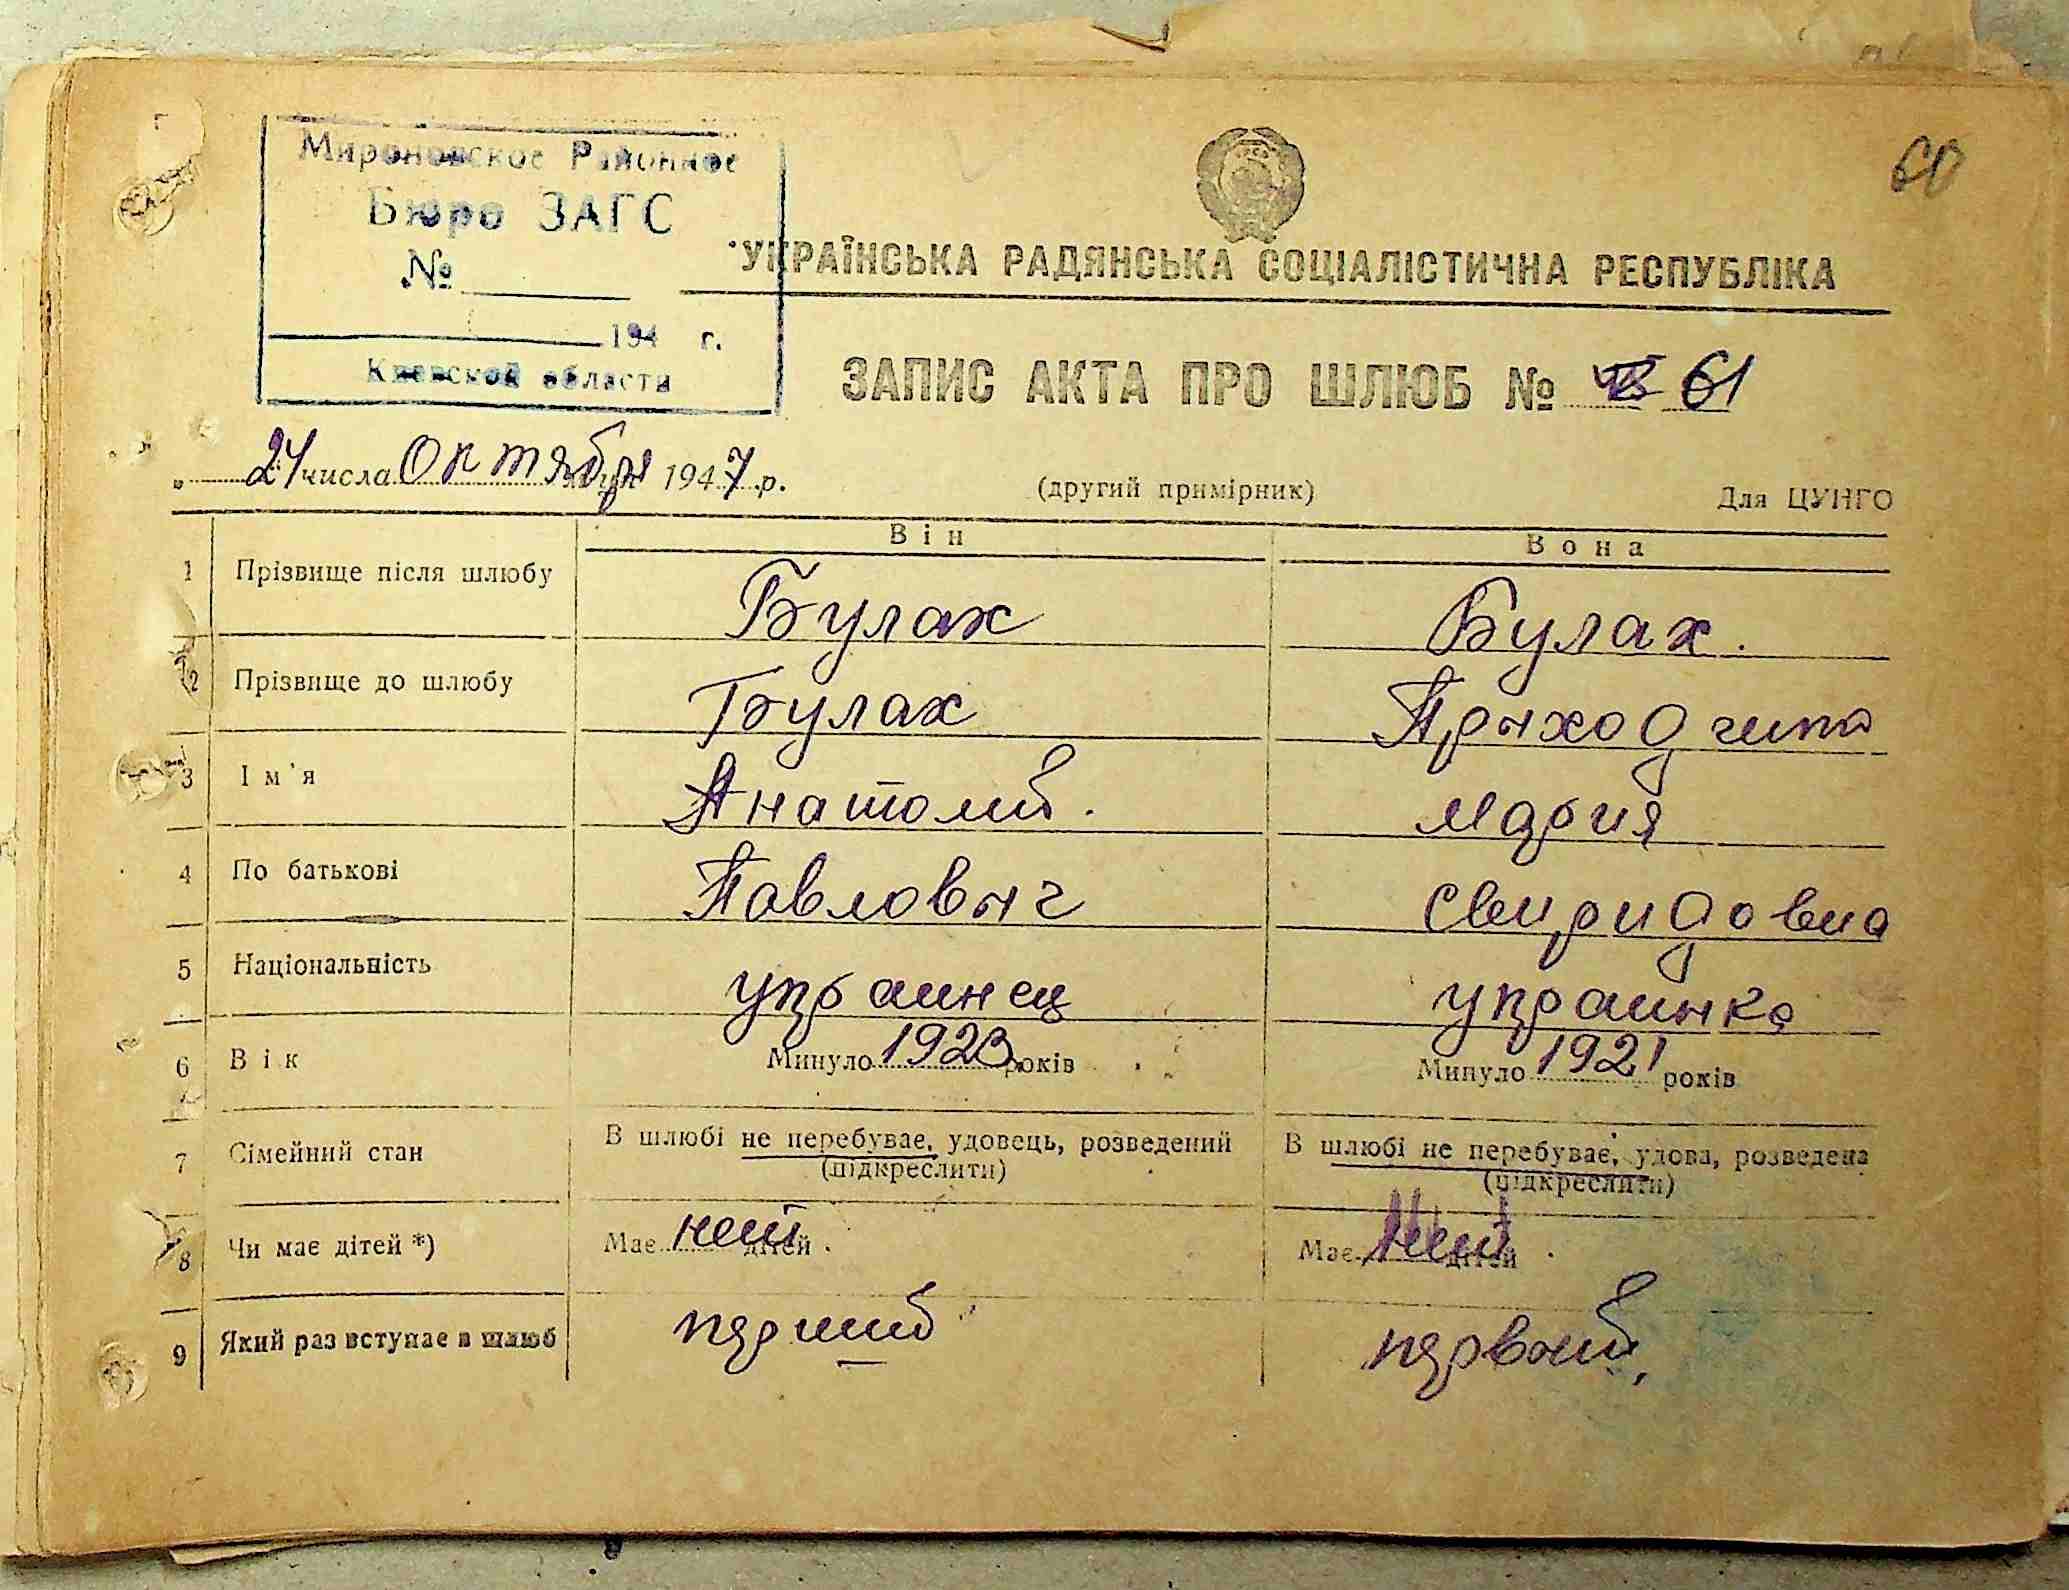 60
Мироновское Районное
Бюро ЗАГС
№
194 г.
Киевской области
УКРАЇНСЬКА РАДЯНСЬКА СОЦІАЛІСТИЧНА РЕСПУБЛІКА
ЗАПИС АКТА ПРО ШЛЮБ № 61
„ 24 числа Октября 1947 р.
(другий примірник)
Для ЦУНГО
Він Вона
1 Прізвище після шлюбу Булах Булах.
2 Прізвище до шлюбу Булах
3 Ім'я Анатолий. Мария
4 По батькові Павловыч Свиридовна
5 Національність украинец украинка
6 Вік Минуло 1923 років Минуло 1921 років
7 Сімейний стан В шлюбі не перебуває, удовець, розведений В шлюбі не перебуває, удова, розведена
(підкреслити) (підкреслити)
8 Чи має дітей *) Має нет дітей. Має нет дітей.
9 Який раз вступає в шлюб перший первый